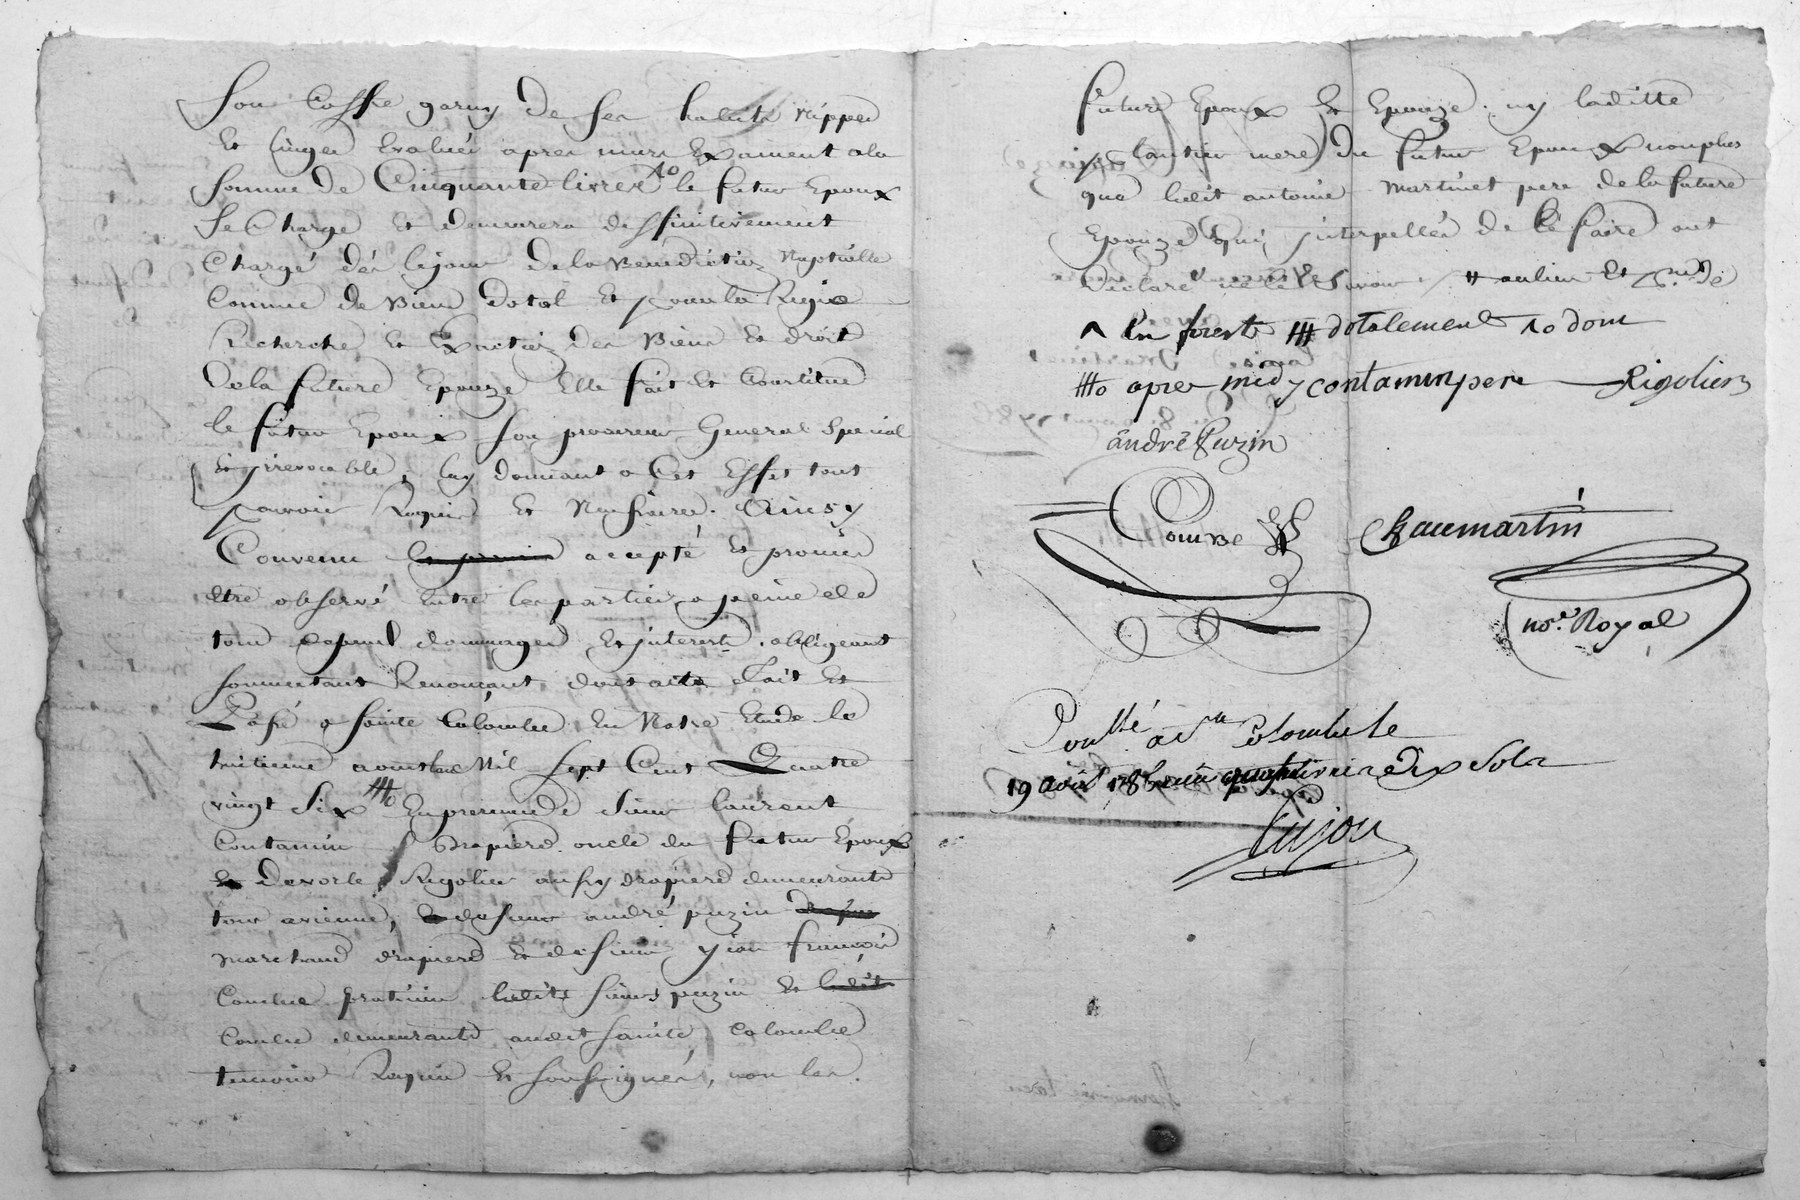 Son Coffre garny de ses habits nippes
Et linges Evalués apres murs Exament ala
somme de Cinquante livres 10 le futur Epoux
se Charge Et demeurera deffinitivement
Chargé dés lejour dela Benediction Nuptialle
Comme de Bien dotal Et pour la Regie
Recherche Et Exaction des Biens Et droit
dela future Epouze Elle fait Et Constitue
le futur Epoux son procureur General Special
Et irrevocable, luy donnant a Cet Effet tout
pouvoir Requis Et Necessaire. Ainsy
Convenu accepté Et promis
Etre observé Entre les parties a peine de
tous depens dommages Et interest. obligeant
soumettant Renonçant dont acte fait Et
Passé a sainte Colombe En Notre Etude le
huitieme aoust Mil sept Cent Quatre
vingt six ##o En presence de sieur laurent
Contamin Drapiers oncle du futur Epoux
de Rigolier aussy drapiers demeurants
tous avienne, de sieur andré puzin
marchand drapiers Et de sieur jean françois
Combe praticien lesdits sieurs puzin Et
Combe demeurants audit sainte Colombe
temoins Requis Et soussignés, non les.
future Epoux Et Epouze. ny laditte
lantier mere du futur Epoux nonplus
que ledit antoine Martinet pere dela future
Epouze qui interpellés de le faire ont
Declaré ne le savoir # aulieu Et
^ En forest ## dotalement 10 dont
##o apres midy contamin pere Rigolier
andré Puzin
Combe Chaumartin
no.re Royal
Conllé a S.te Colombe le
19 aoust 1786 dix Sols
Cujon